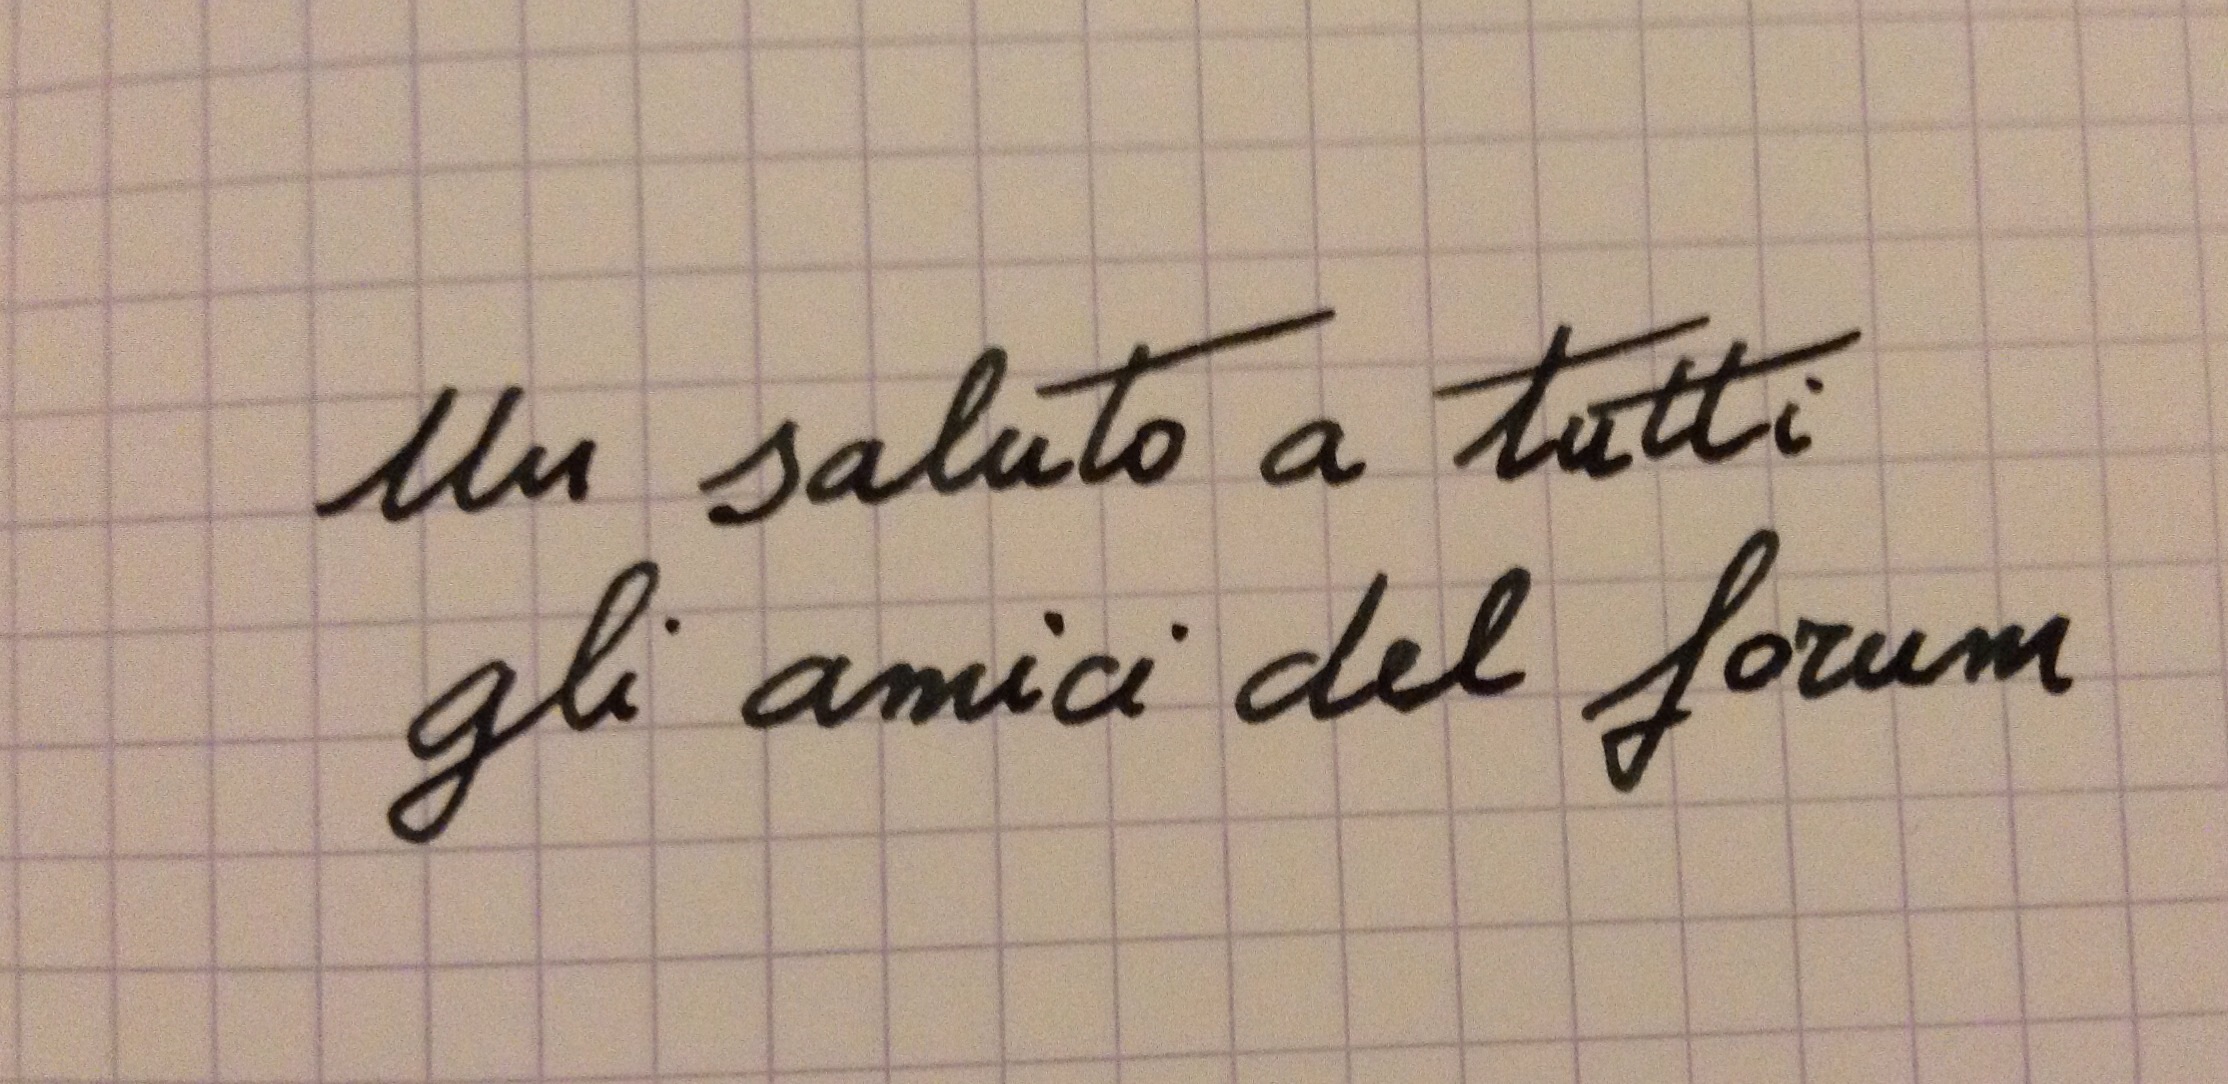 Un saluto a tutti
gli amici del forum